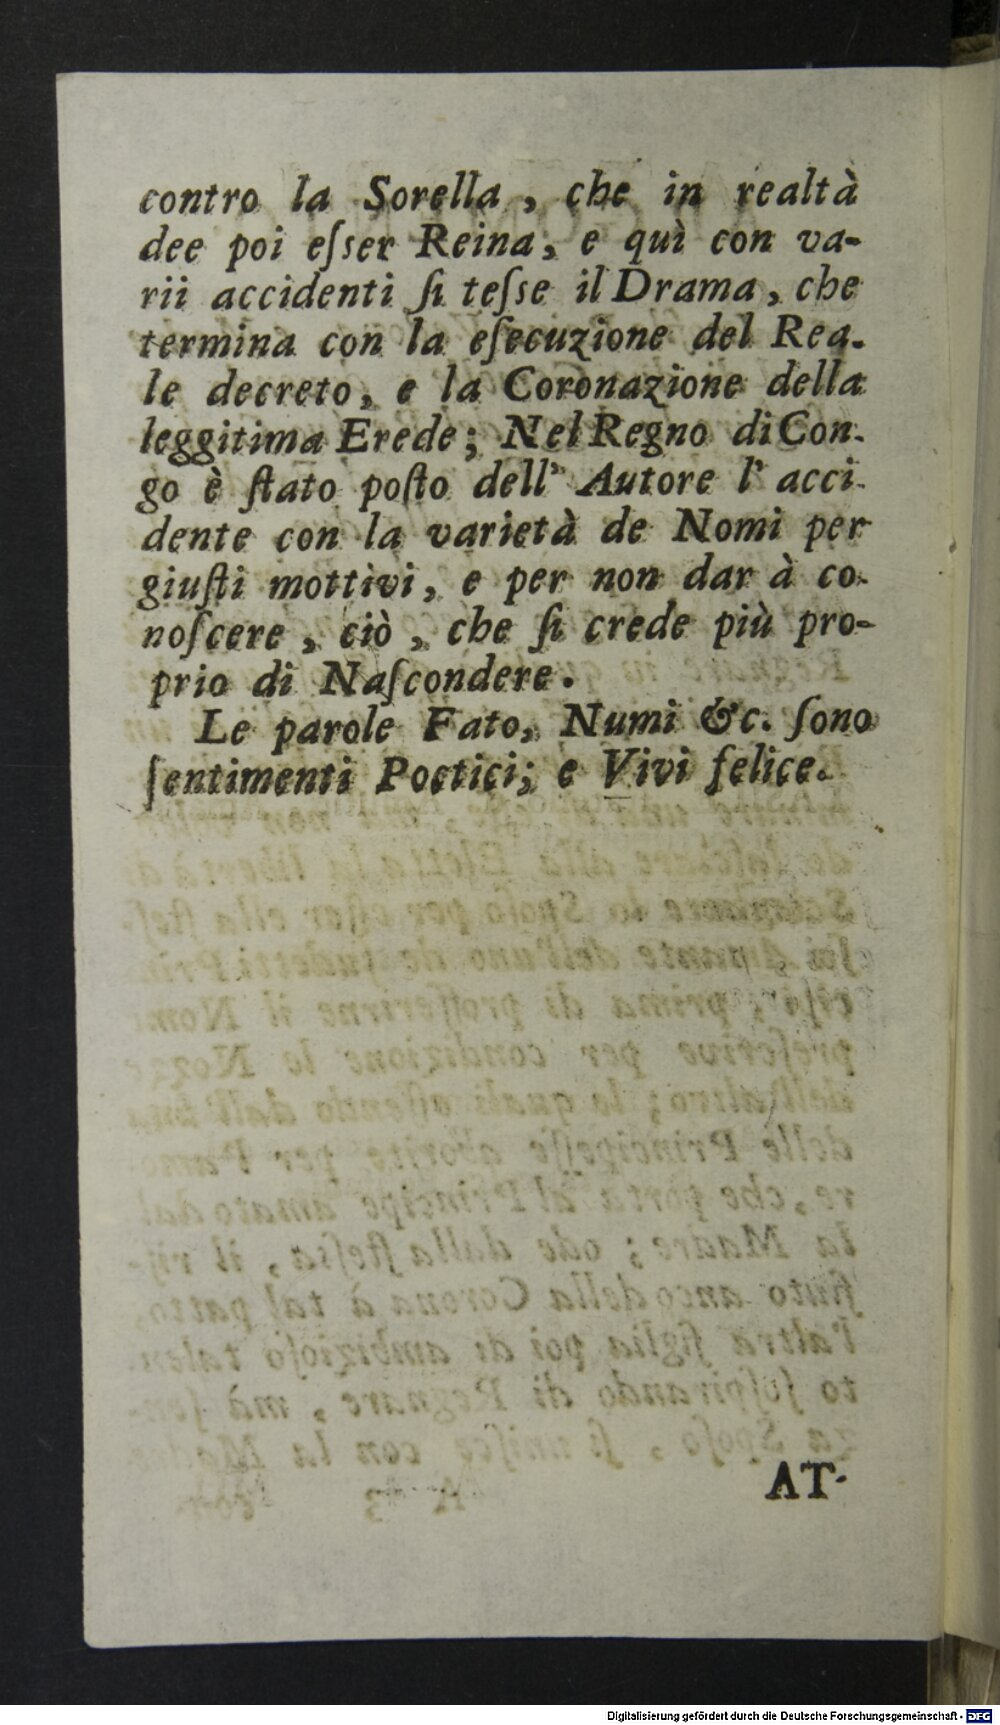 contro la Sorella, che in realtà
dee poi eſser Reina, e quì con va-
rii accidenti ſi teſse il Drama, che
termina con la eſecuzione del Rea-
le decreto, e la Coronazione della
leggitima Erede; Nel Regno di Con-
go è ſtato poſto dell' Autore l' acci-
dente con la varietà de Nomi per
giuſti mottivi, e per non dar à co-
noſcere, ciò, che ſi crede più pro-
prio di Naſcondere.
Le parole Fato, Numi &c. ſono
ſentimenti Poetici; e Vivi felice.
AT-
Digitalisierung gefördert durch die Deutsche Forschungsgemeinschaft - DFG